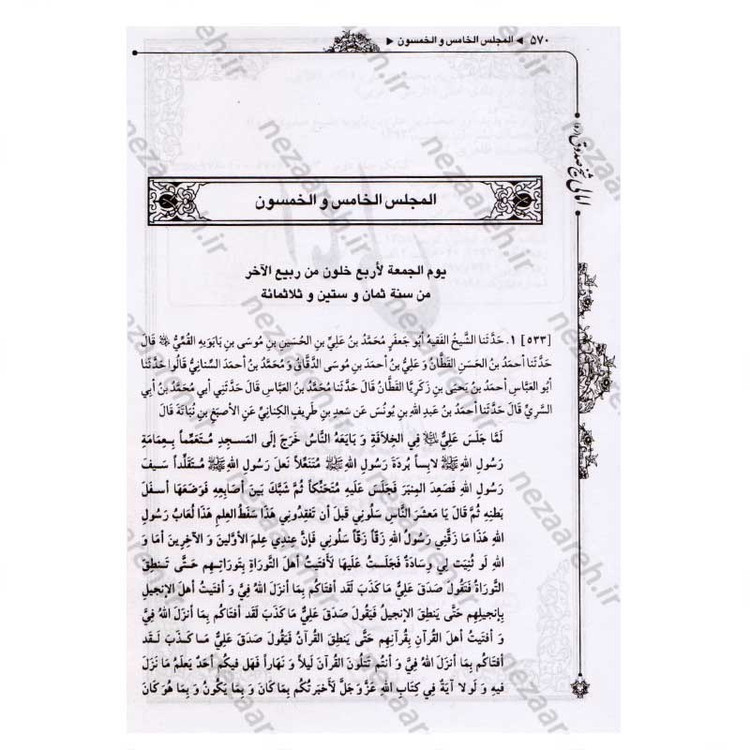 ۵۷۰ ◄ المجلس الخامس و الخمسون ►
امالی شیخ صدوق (ره)
المجلس الخامس و الخمسون
يوم الجمعة لأربع خلون من ربيع الآخر
من سنة ثمان و ستين و ثلاثمائة
[۵۳۳] ۱. حَدَّثَنَا الشَّيخُ الفَقيهُ أبُو جَعفَرٍ مُحَمَّدُ بنُ عَلِيِّ بنِ الحُسَينِ بنِ مُوسَى بنِ بَابَوَيهِ القُمِّيُّ قَالَ
حَدَّثَنَا أحمَدُ بنُ الحَسَنِ القَطَّانُ وَ عَلِيُّ بنُ أحمَدَ بنِ مُوسَى الدَّقَّاقُ وَ مُحَمَّدُ بنُ أحمَدَ السِّنَانِيُّ قَالُوا حَدَّثَنَا
أبُو العَبَّاسِ أحمَدُ بنُ يَحيَى بنِ زَكَرِيَّا القَطَّانُ قَالَ حَدَّثَنَا مُحَمَّدُ بنُ العَبَّاسِ قَالَ حَدَّثَنِي أبِي مُحَمَّدُ بنُ أبِي
السَّرِيِّ قَالَ حَدَّثَنَا أحمَدُ بنُ عَبدِ اللهِ بنِ يُونُسَ عَن سَعدِ بنِ طَرِيفٍ الكِنَانِيِّ عَنِ الأصبَغِ بنِ نُبَاتَةَ قَالَ
لَمَّا جَلَسَ عَلِيٌّ فِي الخِلَافَةِ وَ بَايَعَهُ النَّاسُ خَرَجَ إلَى المَسجِدِ مُتَعَمِّماً بِعِمَامَةِ
رَسُولِ اللهِ ﷺ لَابِساً بُردَةَ رَسُولِ اللهِ ﷺ مُتَنَعِّلاً نَعلَ رَسُولِ اللهِ ﷺ مُتَقَلِّداً سَيفَ
رَسُولِ اللهِ فَصَعِدَ المِنبَرَ فَجَلَسَ عَلَيهِ مُتَحَنِّكاً ثُمَّ شَبَّكَ بَينَ أصَابِعِهِ فَوَضَعَهَا أسفَلَ
بَطنِهِ ثُمَّ قَالَ يَا مَعشَرَ النَّاسِ سَلُونِي قَبلَ أن تَفقِدُونِي هَذَا سَفَطُ العِلمِ هَذَا لُعَابُ رَسُولِ
اللهِ هَذَا مَا زَقَّنِي رَسُولُ اللهِ زَقّاً زَقّاً سَلُونِي فَإنَّ عِندِي عِلمَ الأوَّلِينَ وَ الآخِرِينَ أمَا وَ
اللهِ لَو ثُنِيَت لِي وِسَادَةٌ فَجَلَستُ عَلَيهَا لَأفتَيتُ أهلَ التَّورَاةِ بِتَورَاتِهِم حَتَّى تَنطِقَ
التَّورَاةُ فَتَقُولَ صَدَقَ عَلِيٌّ مَا كَذَبَ لَقَد أفتَاكُم بِمَا أنزَلَ اللهُ فِيَّ وَ أفتَيتُ أهلَ الإنجِيلِ
بِإنجِيلِهِم حَتَّى يَنطِقَ الإنجِيلُ فَيَقُولَ صَدَقَ عَلِيٌّ مَا كَذَبَ لَقَد أفتَاكُم بِمَا أنزَلَ اللهُ فِيَّ
وَ أفتَيتُ أهلَ القُرآنِ بِقُرآنِهِم حَتَّى يَنطِقَ القُرآنُ فَيَقُولَ صَدَقَ عَلِيٌّ مَا كَذَبَ لَقَد
أفتَاكُم بِمَا أنزَلَ اللهُ فِيَّ وَ أنتُم تَتلُونَ القُرآنَ لَيلاً وَ نَهَاراً فَهَل فِيكُم أحَدٌ يَعلَمُ مَا نَزَلَ
فِيهِ وَ لَولَا آيَةٌ فِي كِتَابِ اللهِ عَزَّ وَ جَلَّ لَأخبَرتُكُم بِمَا كَانَ وَ بِمَا يَكُونُ وَ بِمَا هُوَ كَائِنٌ
nezaareh.ir